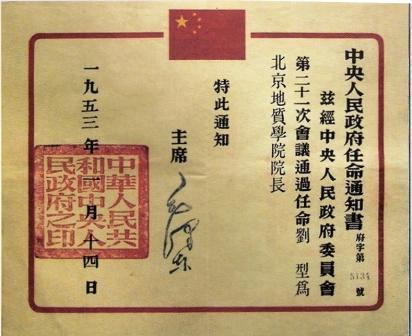 中央人民政府任命通知書
府字第5134號
茲經中央人民政府委員會
第二十一次會議通過任命劉型為
北京地質學院院長
特此通知
主席
毛澤東
一九五三年一月十四日
中華人民共
和國中央人
民政府之印